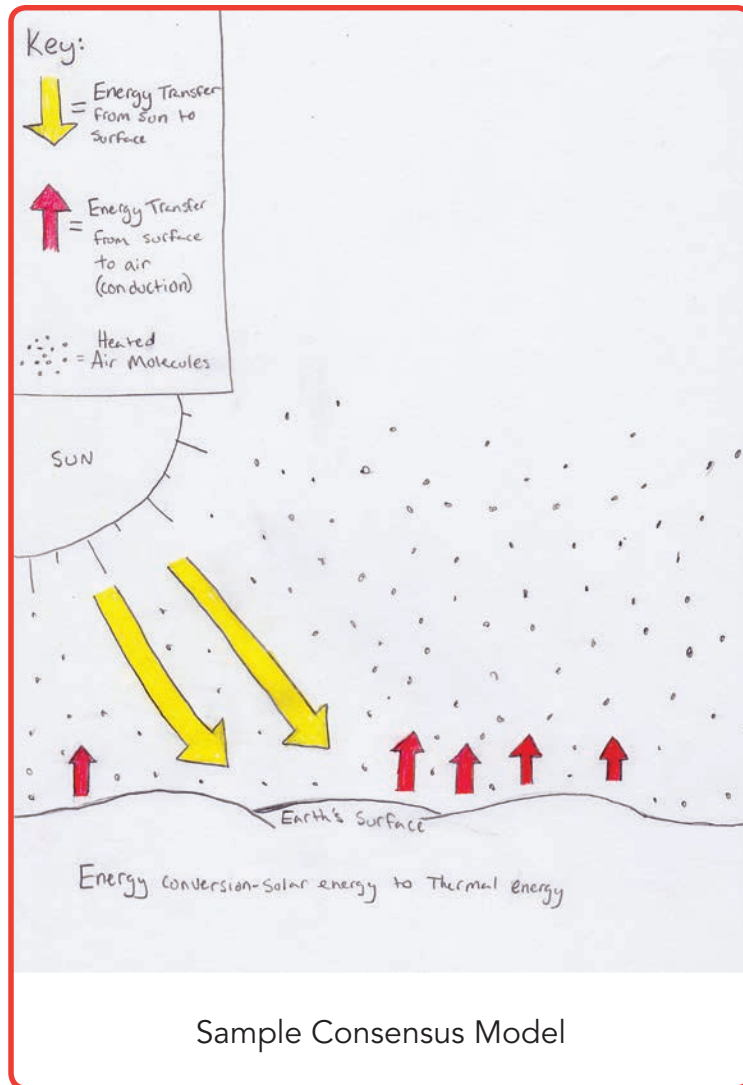 Key:
= Energy Transfer
from sun to
surface
= Energy Transfer
from surface
to air
(conduction)
= Heated
Air Molecules
SUN
Earth's Surface
Energy conversion-solar energy to Thermal energy
Sample Consensus Model